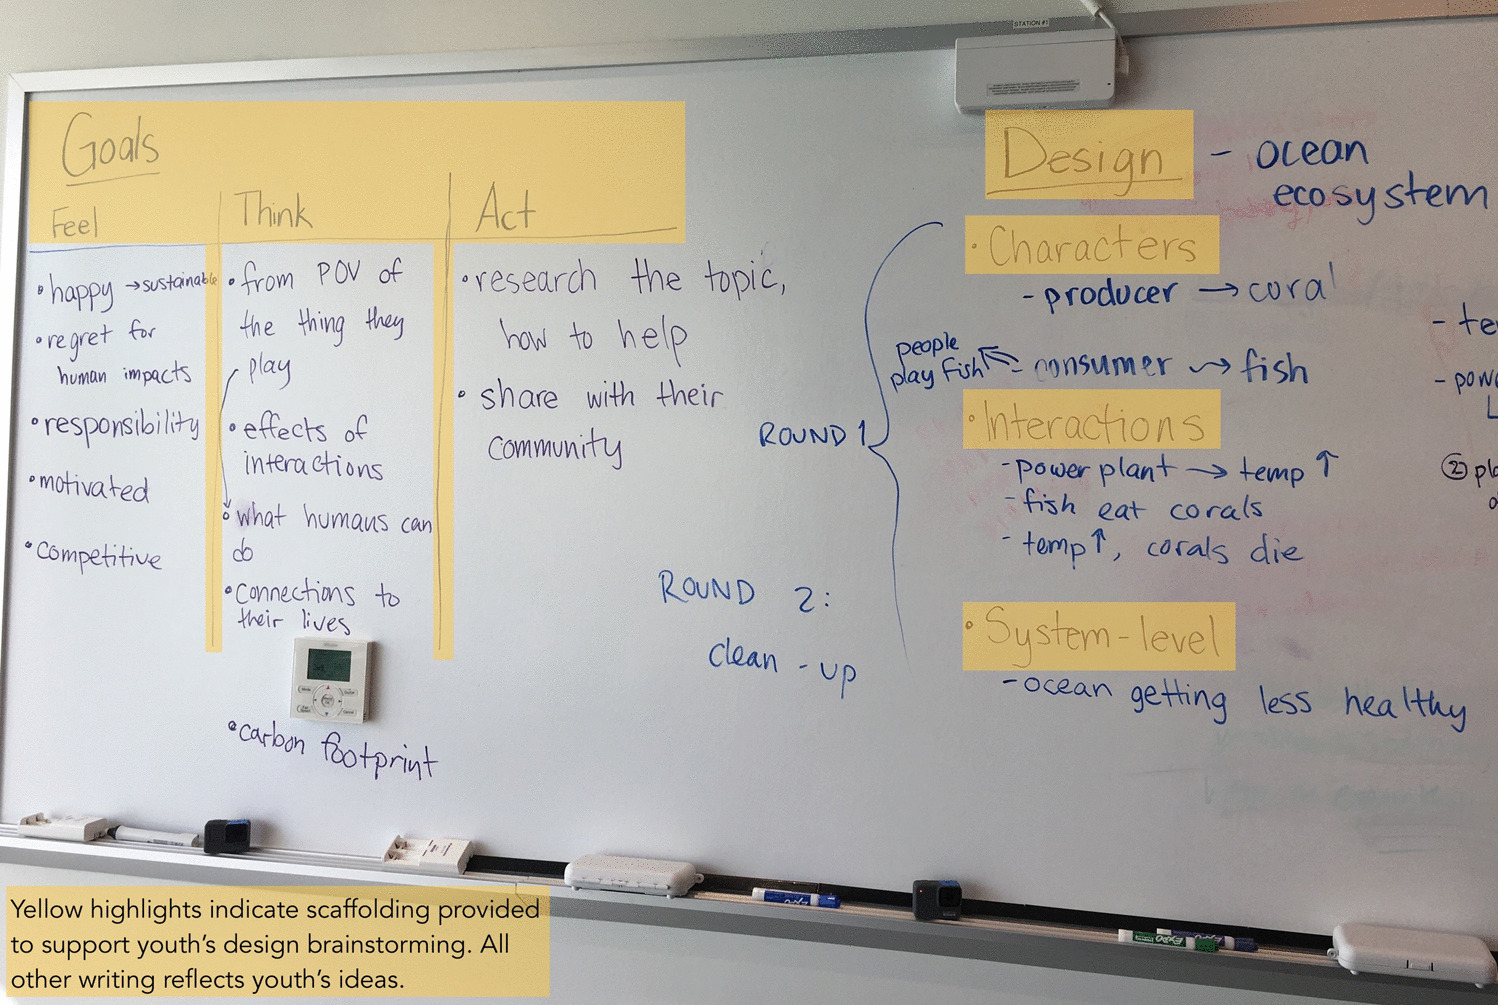 STATION #1
Goals
Feel
Think
Act
• happy → sustainable
• regret for
human impacts
• responsibility
• motivated
• competitive
• from POV of
the thing they
play
• effects of
interactions
• what humans can
do
• connections to
their lives
• carbon footprint
• research the topic,
how to help
• share with their
community
ROUND 1
ROUND 2:
clean-up
Design - ocean
ecosystem
• Characters
- producer → coral
people
play fish
- consumer → fish
• Interactions
- power plant → temp ↑
- fish eat corals
- temp ↑, corals die
• System-level
- ocean getting less healthy
②
EXPO
Yellow highlights indicate scaffolding provided
to support youth's design brainstorming. All
other writing reflects youth's ideas.